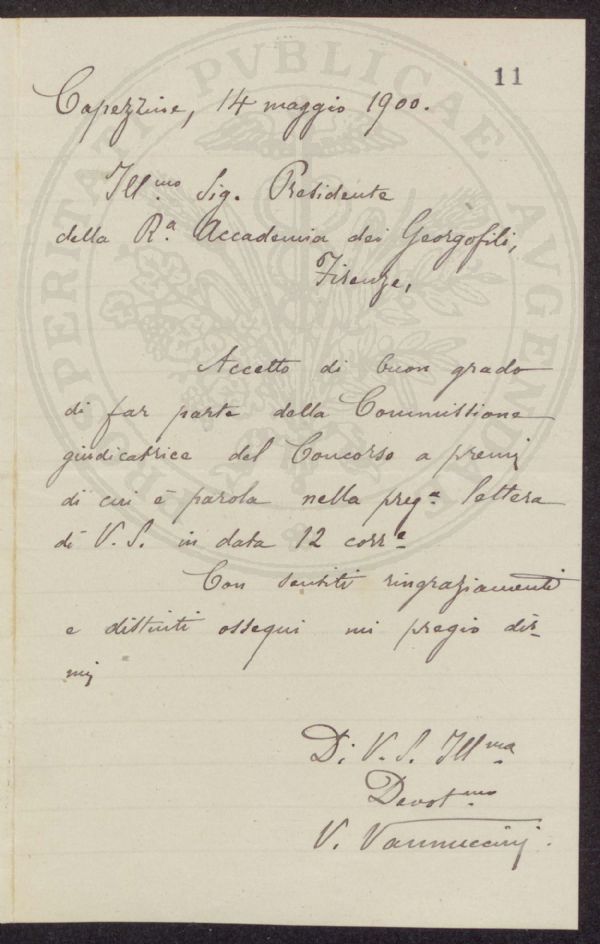 PROSPERITATI PVBLICAE AVGENDAE
11
Capezzine, 14 maggio 1900.
Ill.mo Sig. Presidente
della R.a Accademia dei Georgofili,
Firenze,
Accetto di buon grado
di far parte della Commissione
giudicatrice del Concorso a premj
di cui è parola nella preg.a lettera
di V. S. in data 12 corr.e
Con sentiti ringraziamenti
e distinti ossequi mi pregio dir-
mj
Di V. S. Ill.ma
Devot.mo
V. Vannuccinj.